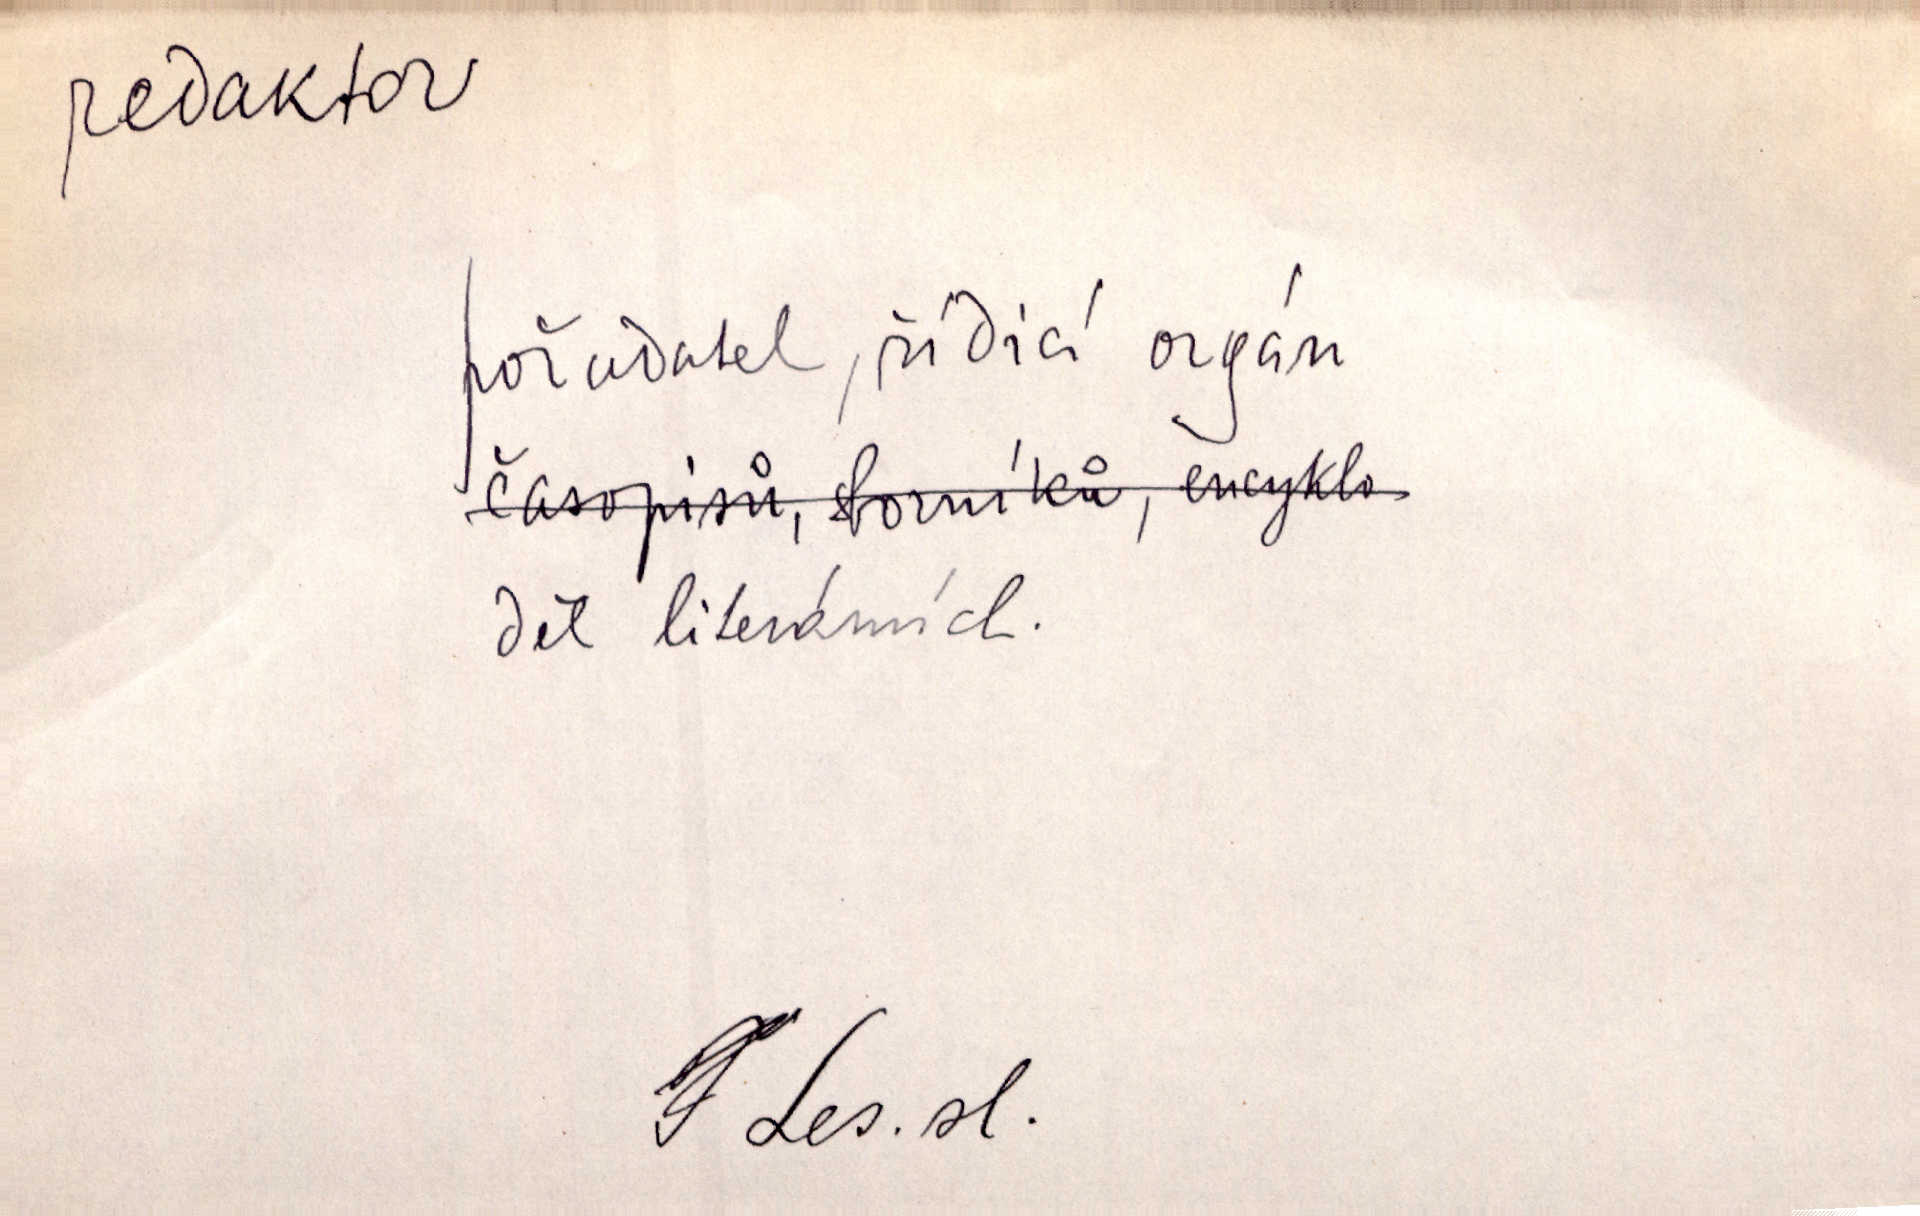 redaktor
pořadatel, řídicí orgán
časopisů, sborníků, encyklo
děl literárních.
Les. sl.